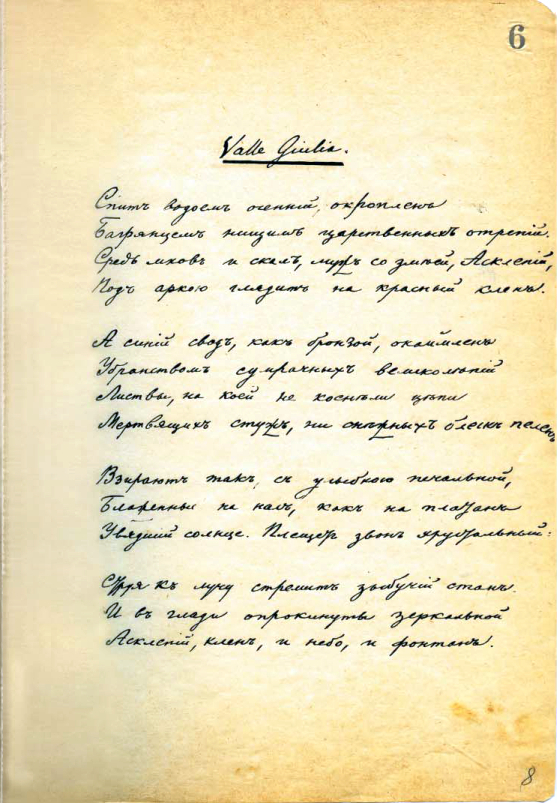 6
Valle Giulia.
Спитъ водоемъ осенній, окропленъ
Багрянцемъ нищимъ царственныхъ отрепій.
Средь мховъ и скалъ, мужъ со змѣей, Асклепій,
Подъ аркою глядитъ на красный кленъ.
А синій сводъ, какъ бронзой, окаймленъ
Убранствомъ сумрачныхъ великолѣпій
Листвы, на коей не коснѣли цѣпи
Мертвящихъ стужъ, ни снѣжныхъ блескъ пеленъ
Взираютъ такъ, съ улыбкою печальной,
Блаженные на насъ, какъ на платанъ
Увядшій солнце. Плещетъ звонъ хрустальный:
Струя къ лучу стремитъ зыбучій станъ.
И въ глади опрокинуты зеркальной
Асклепій, кленъ, и небо, и фонтанъ.
8